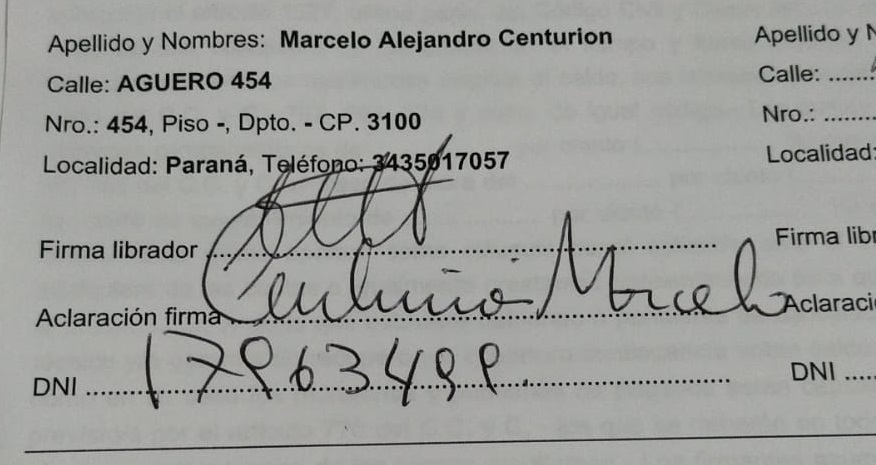 Apellido y Nombres: Marcelo Alejandro Centurion
Calle: AGUERO 454
Nro.: 454, Piso -, Dpto. - CP. 3100
Localidad: Paraná, Teléfono: 3435017057
Firma librador
Aclaración firma Centurión Marcelo
DNI 17963499.
Apellido y N
Calle:
Nro.:
Localidad:
Firma libr
Aclaraci
DNI